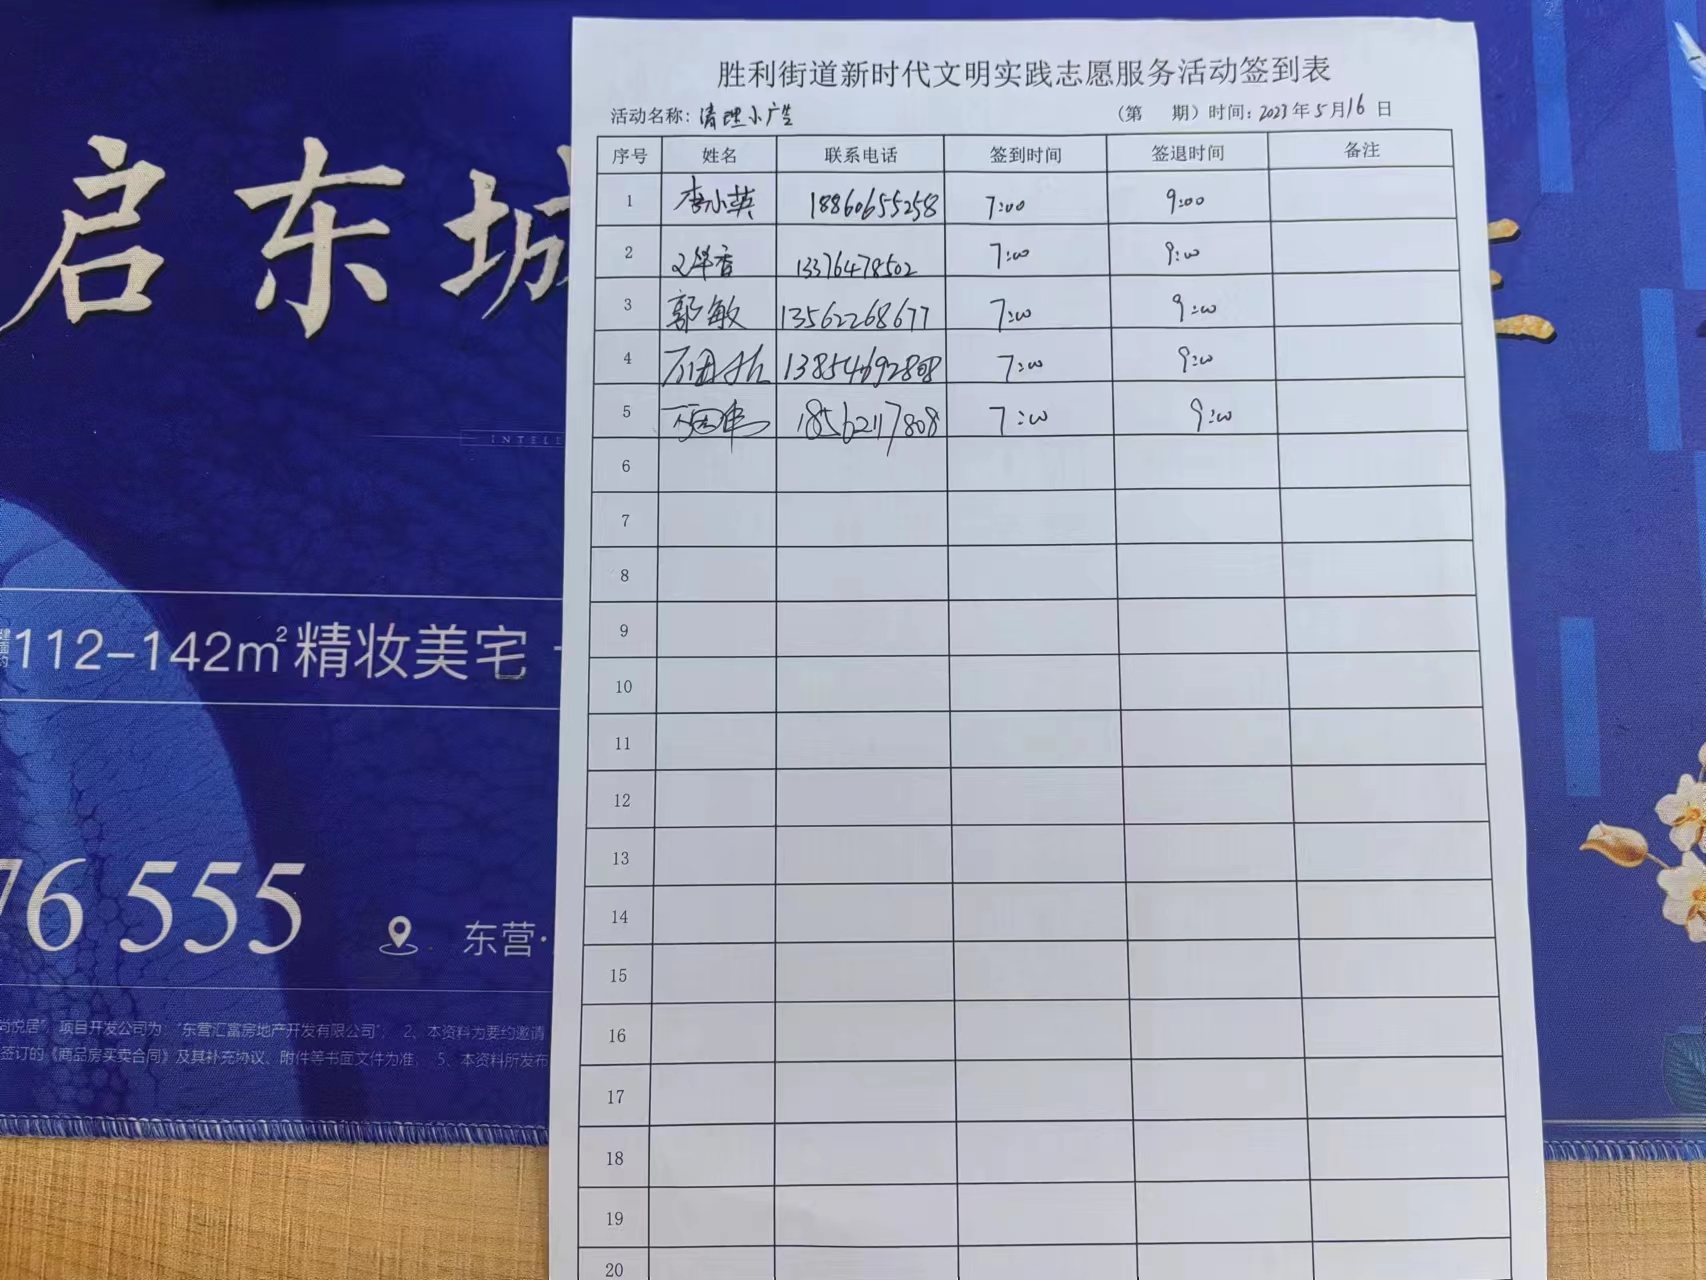 胜利街道新时代文明实践志愿服务活动签到表
活动名称：清理小广告 （第 期）时间：2023年5月16日
序号 姓名 联系电话 签到时间 签退时间 备注
1 李小英 18860655258 7:00 9:00
2 13376478502 7:00 9:00
3 郭敏 13562268677 7:00 9:00
4 13854692808 7:00 9:00
5 18562117808 7:00 9:00
6
7
8
9
10
11
12
13
14
15
16
17
18
19
20
启东城
INTELL
112-142m²精妆美宅
76 555
东营·
尚悦居”，项目开发公司为：“东营汇富房地产开发有限公司”； 2、本资料为要约邀请
签订的《商品房买卖合同》及其补充协议、附件等书面文件为准， 5、本资料所发布